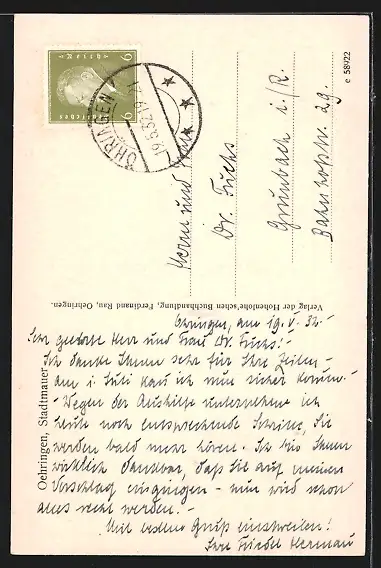 Öhringen, am 19. V. 32.-
Sehr geehrte Herr und Frau Dr. Fuchs!-
Ich danke Ihnen sehr für Ihre Zeilen-
am 1. Juli kann ich nun sicher kommen.-
-Wegen der Aushilfe unternehme ich
heute noch entsprechende Schritte, Sie
werden bald mehr hören. Ich bin Ihnen
wirklich dankbar, daß Sie auf meinen
Vorschlag eingingen - nun wird schon
alles recht werden.-
Mit besten Gruß einstweilen!
Ihre Friedel
Herrn und Frau
Dr. Fuchs
Grünbach i./R.
Bahnhofstr. 29.
Oehringen, Stadtmauer
Verlag der Hohenlohe'schen Buchhandlung, Ferdinand Rau, Oehringen.
c 58922
ÖHRINGEN
19.5.32
6 6